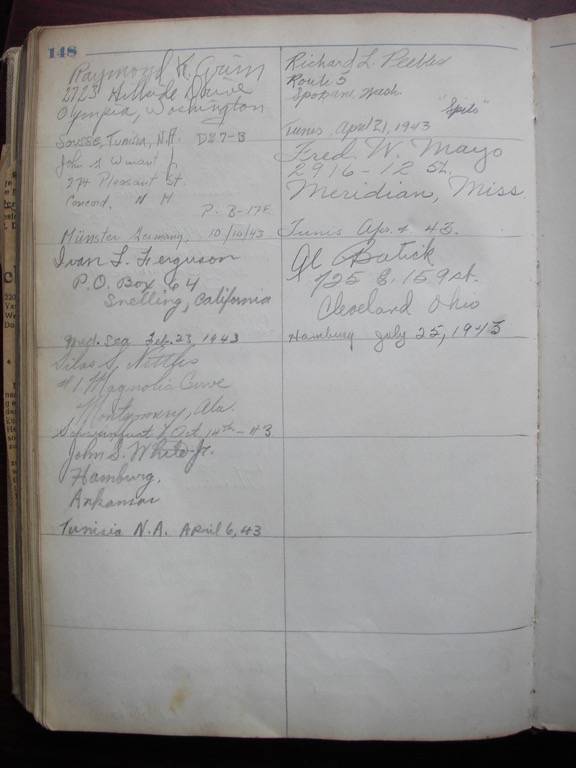 148
Raymond K. Grim
2723 Hillside Drive
Olympia, Washington
Sousse, Tunisia, N.A. D87-B
John G Winant Jr.
274 Pleasant St.
Concord, N H
P. B-17F
Münster Germany, 10/10/43
Ivan L. Ferguson
P.O. Box 64
Snelling, California
Med. Sea Feb. 23, 1943
Silas S. Nettles
#1 Magnolia Curve
Montgomery, Ala.
Schweinfurt Oct 14th - 43
John S. White Jr.
Hamburg,
Arkansas
Tunisia N.A. April 6, 43
Richard L. Peebles
Route 5
Spokane, Wash
Tunis April 21, 1943
Fred. W. Mayo
2916-12 St.
Meridian, Miss
Tunis Apr. 43.
Al Batick
725 E. 159 st.
Cleveland Ohio
Hamburg July 25, 1943